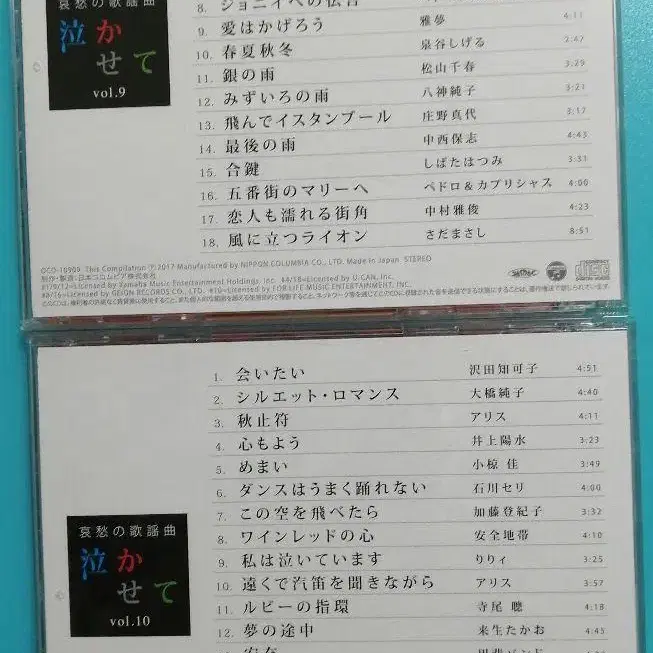 哀愁の歌謡曲
泣かせて
vol.9
8. ジョニィへの伝言
9. 愛はかげろう 雅夢 4:11
10. 春夏秋冬 泉谷しげる 2:47
11. 銀の雨 松山千春 3:29
12. みずいろの雨 八神純子 3:21
13. 飛んでイスタンブール 庄野真代 3:17
14. 最後の雨 中西保志 4:43
15. 合鍵 しばたはつみ 3:31
16. 五番街のマリーへ ペドロ&カプリシャス 4:00
17. 恋人も濡れる街角 中村雅俊 4:23
18. 風に立つライオン さだまさし 8:51
This Compilation Ⓟ2017 Manufactured by NIPPON COLUMBIA CO., LTD. Made in Japan. STEREO
制作・製造:日本コロムビア株式会社
哀愁の歌謡曲
泣かせて
vol.10
1. 会いたい 沢田知可子 4:51
2. シルエット・ロマンス 大橋純子 4:40
3. 秋止符 アリス 4:11
4. 心もよう 井上陽水 3:23
5. めまい 小椋 佳 3:49
6. ダンスはうまく踊れない 石川セリ 4:00
7. この空を飛べたら 加藤登紀子 3:32
8. ワインレッドの心 安全地帯 4:10
9. 私は泣いています りりィ 3:25
10. 遠くで汽笛を聞きながら アリス 3:57
11. ルビーの指環 寺尾 聰 4:18
12. 夢の途中 来生たかお 4:45